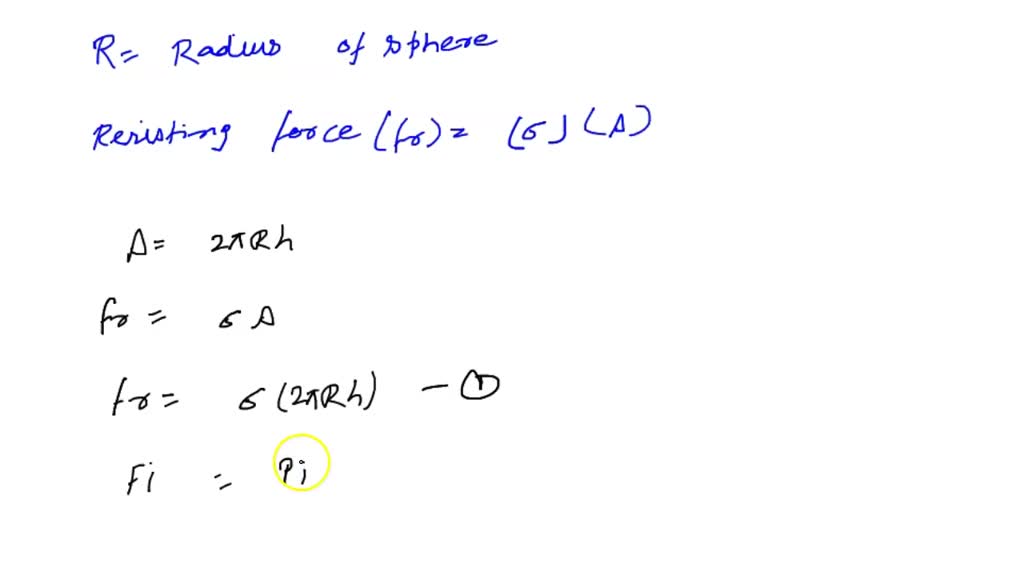 R = Radius of sphere
Resisting force (fr) = (σ) (A)
A = 2πRh
fr = σ A
fr = σ (2πRh) — ①
Fi = Pi